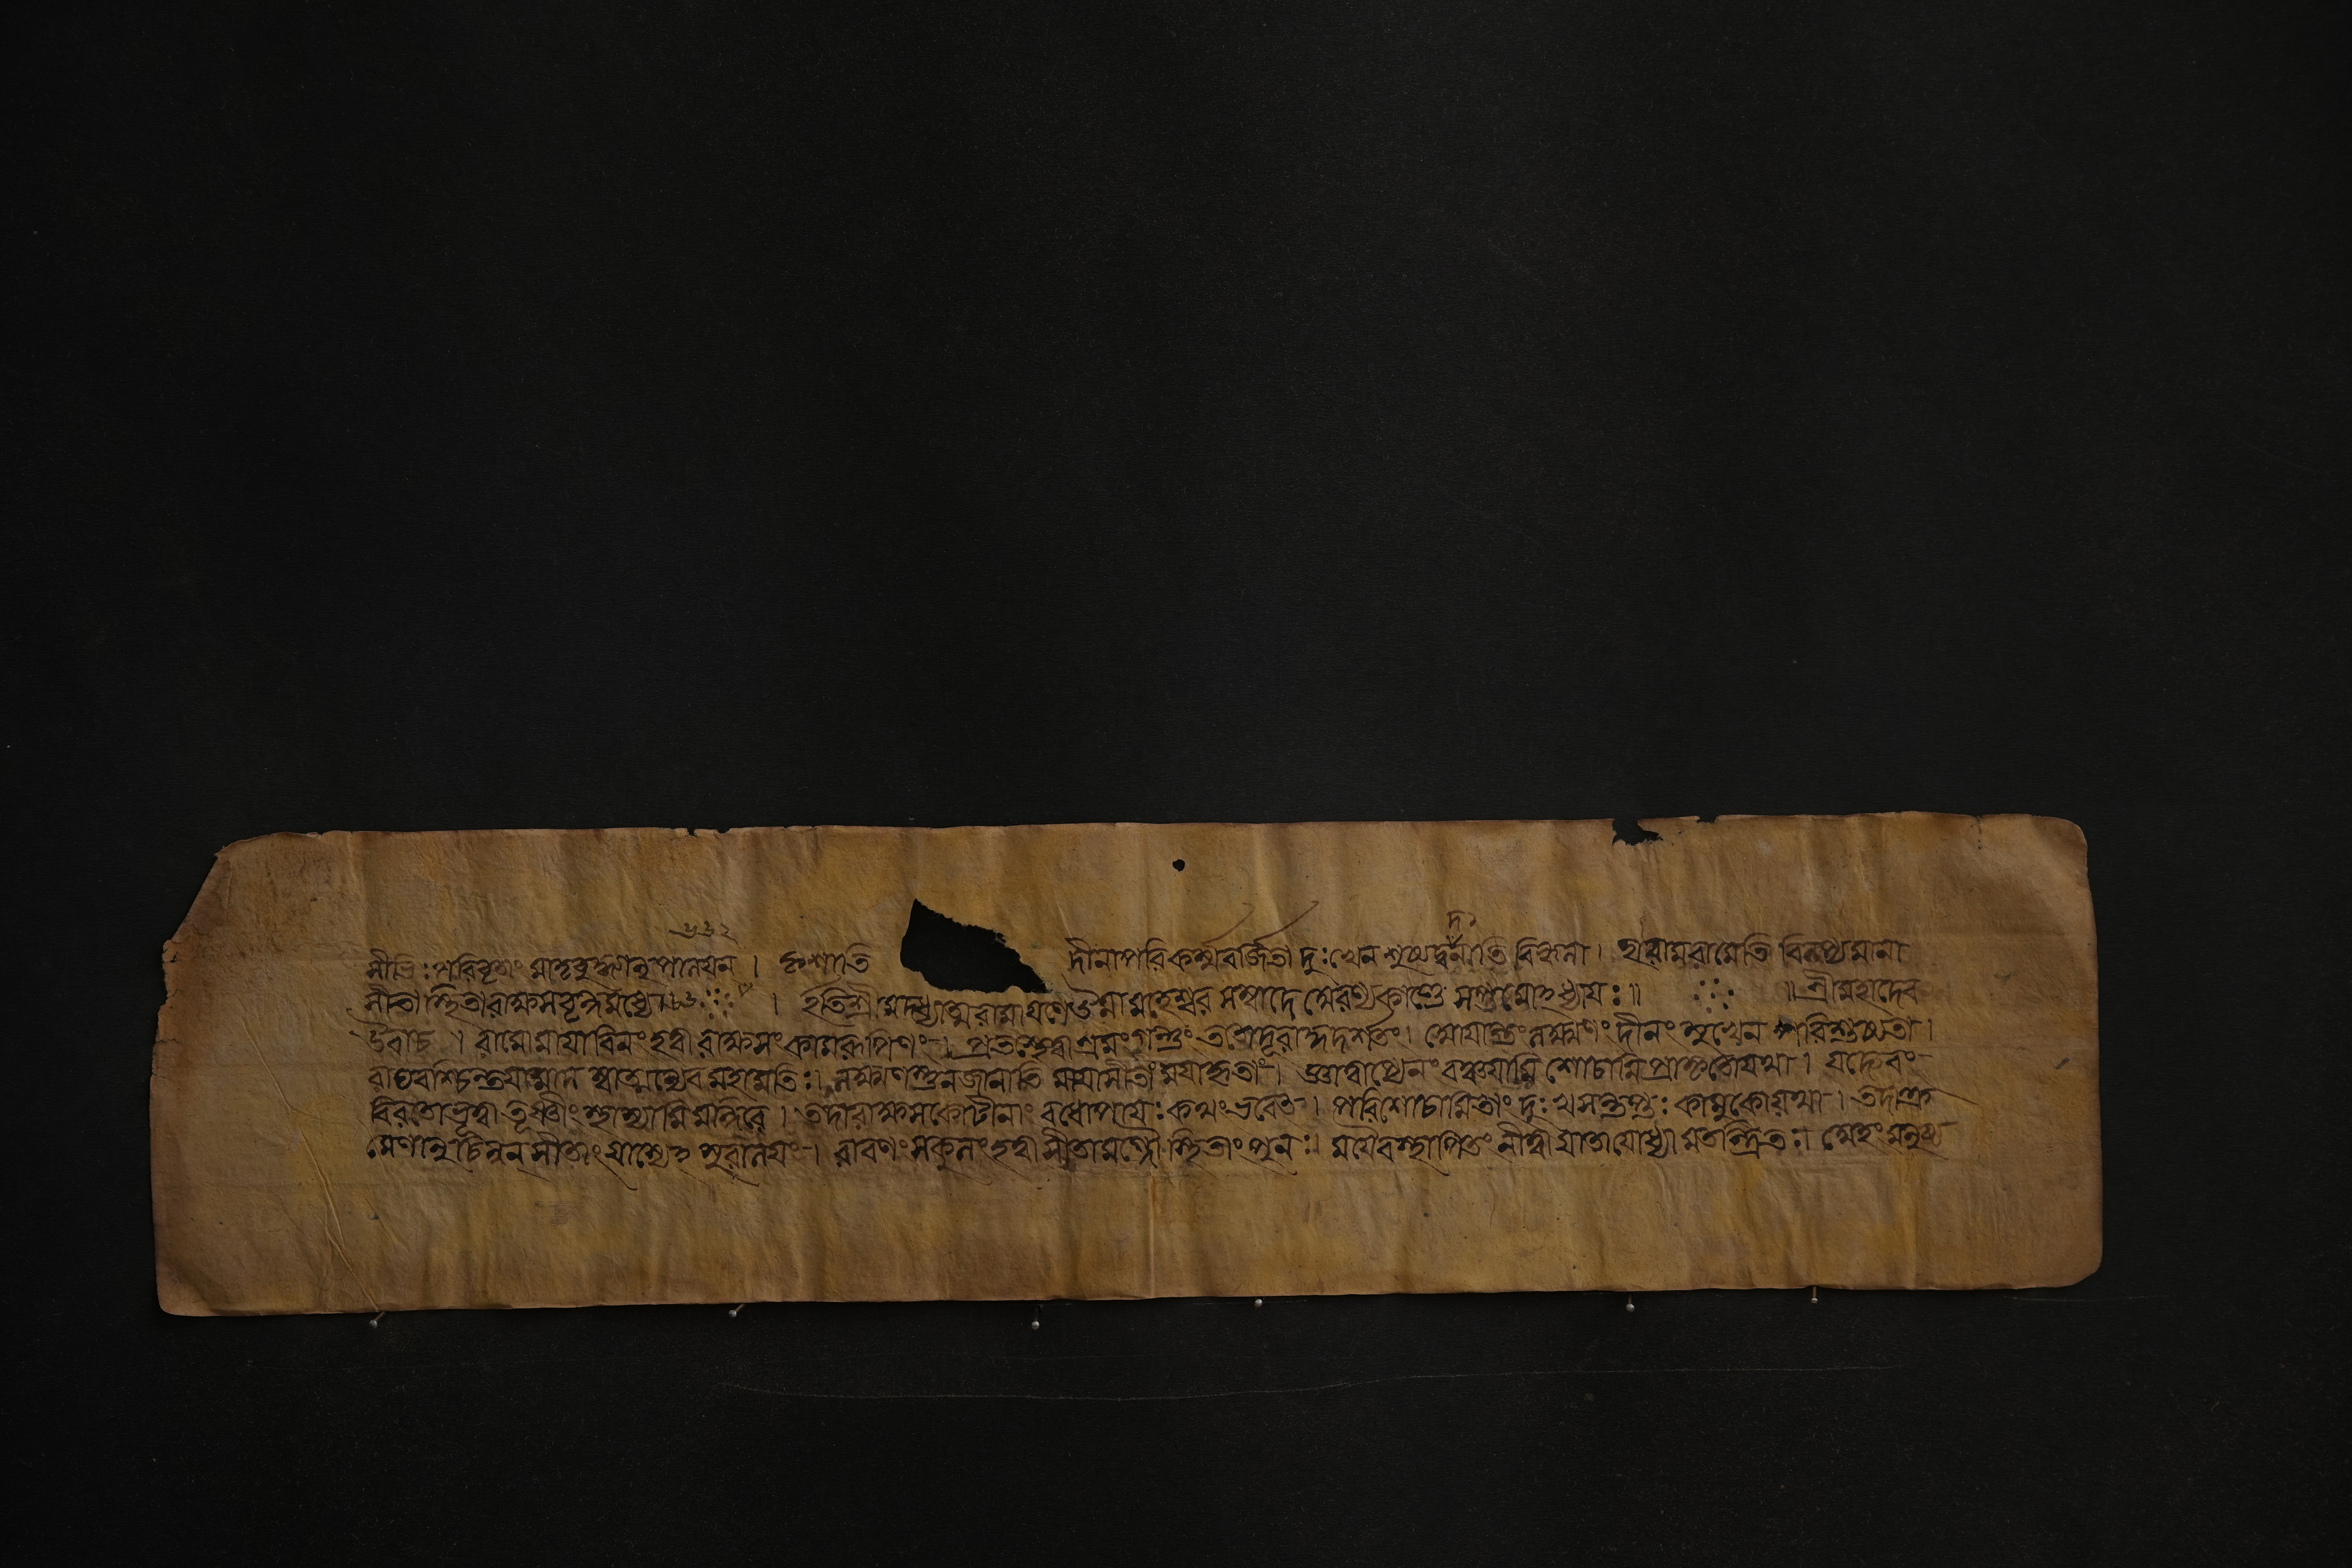 সীভিঃ পরিবৃতাং মাতৃবুদ্ধ্যানুপালয়ন । কৃশাতি দীনাপরিকর্ম্মবর্জিতা দুঃখেন শুষ্যদ্বদনাতি বিহ্বলা । হা রাম রামেতি বিলপ্যমানা
সীতা স্থিতা রাক্ষসবৃন্দমধ্যে । ইতি শ্রীমদধ্যাত্মরামায়ণে উমামহেশ্বর সম্বাদে অরণ্যকাণ্ডে সপ্তমোঽধ্যায়ঃ ॥ ॥ শ্রীমহাদেব
উবাচ । রামো মায়াবিনং হত্বা রাক্ষসং কামরূপিণং । প্রতস্থে স্বাশ্রমং গন্তুং ততোদূরাদ্দদর্শতং । আয়ান্তং লক্ষ্মণং দীনং মুখেন পরিশুষ্যতা ।
রাঘবশ্চিন্তয়ামাস স্বাত্মন্যেব মহামতিঃ । লক্ষ্মণস্তনজানাতি মায়াসীতাং ময়াকৃতাং । জ্ঞাত্বাপ্যেনং বঞ্চয়ামি শোচামি প্রাকৃতোযথা । যদ্যেবং
বিরতোভূত্বা তূষ্ণীং স্থাস্যামি মন্দিরে । তদারাক্ষসকোটীনাং বধোপায়ঃ কথং ভবেত । পরিশোচামিতাং দুঃখসন্তপ্তঃ কামুকোযথা । তদাক্র
মেণানুচিন্বন সীতাং যাস্যেঽসুরালয়ং । রাবণং সকুলং হত্বা সীতামগ্নৌ স্থিতাং পুনঃ । ময়ৈবস্থাপিতং নীত্বা যাতাযোধ্যামতন্দ্রিতঃ । অহং মনুষ্য